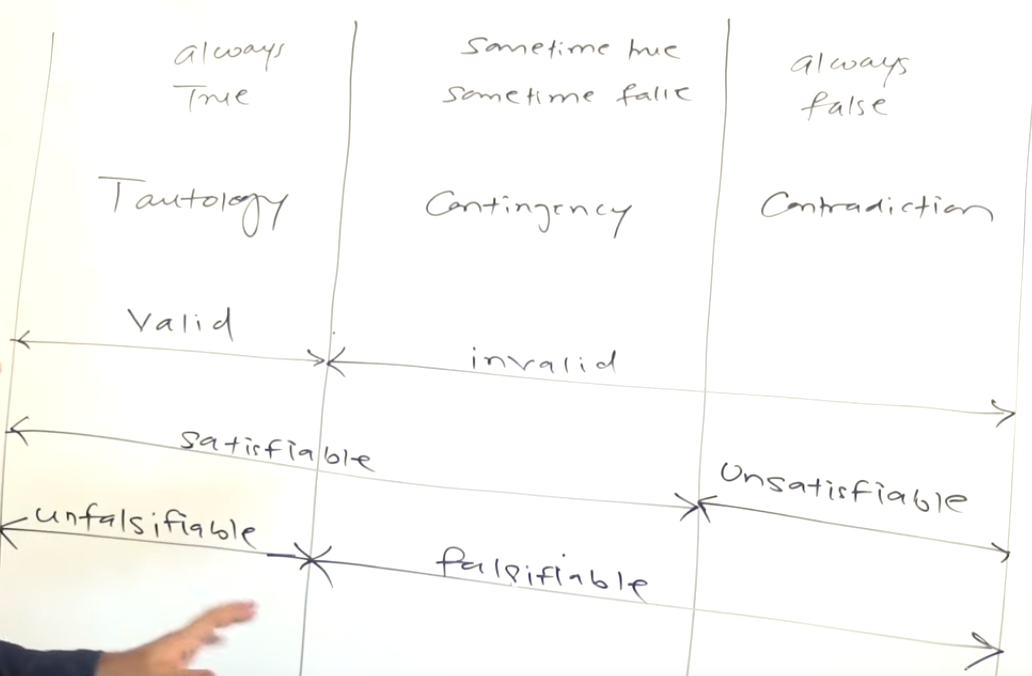 always
True
sometime true
sometime false
always
false
Tautology
Contingency
Contradiction
Valid
invalid
satisfiable
Unsatisfiable
unfalsifiable
falsifiable